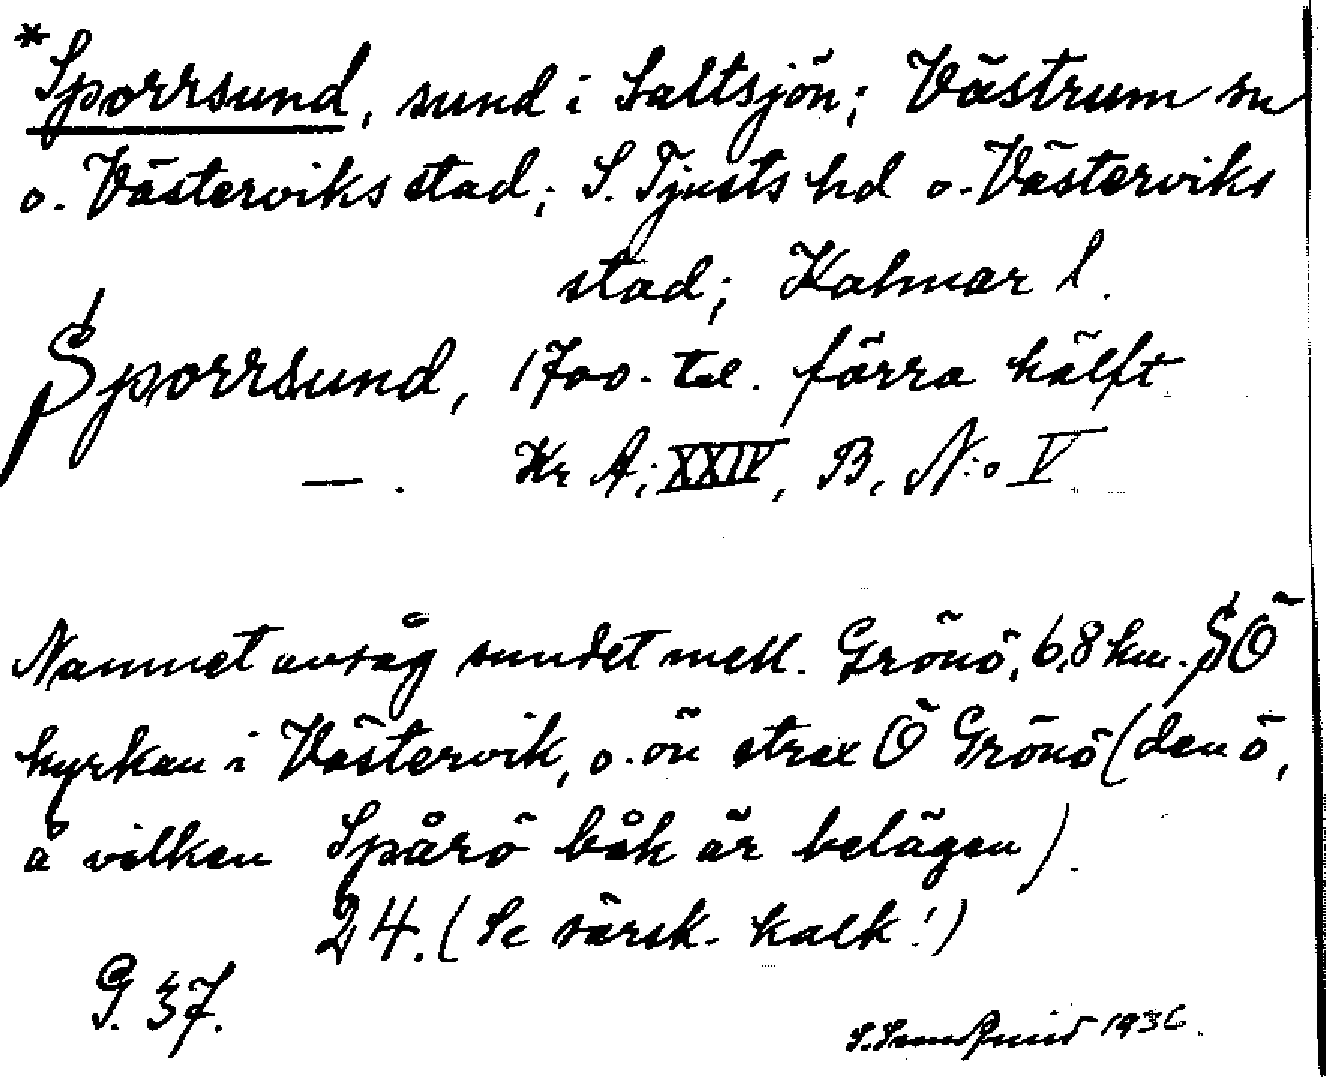 *Sporrsund, sund i Saltsjön; Västrum sn
o. Västerviks stad; S. Tjusts hd o. Västerviks
stad; Kalmar l.
Sporrsund, 1700-tal. förra hälft
— . Kr A; XXIV, B, N:o V
Namnet avsåg sundet mell. Grönö, 6,8 km. SÖ
kyrkan i Västervik, o. ön strax Ö Grönö (den ö,
å vilken Spårö båk är belägen).
24. (Se särsk. kalk!)
G. 37.
1936.